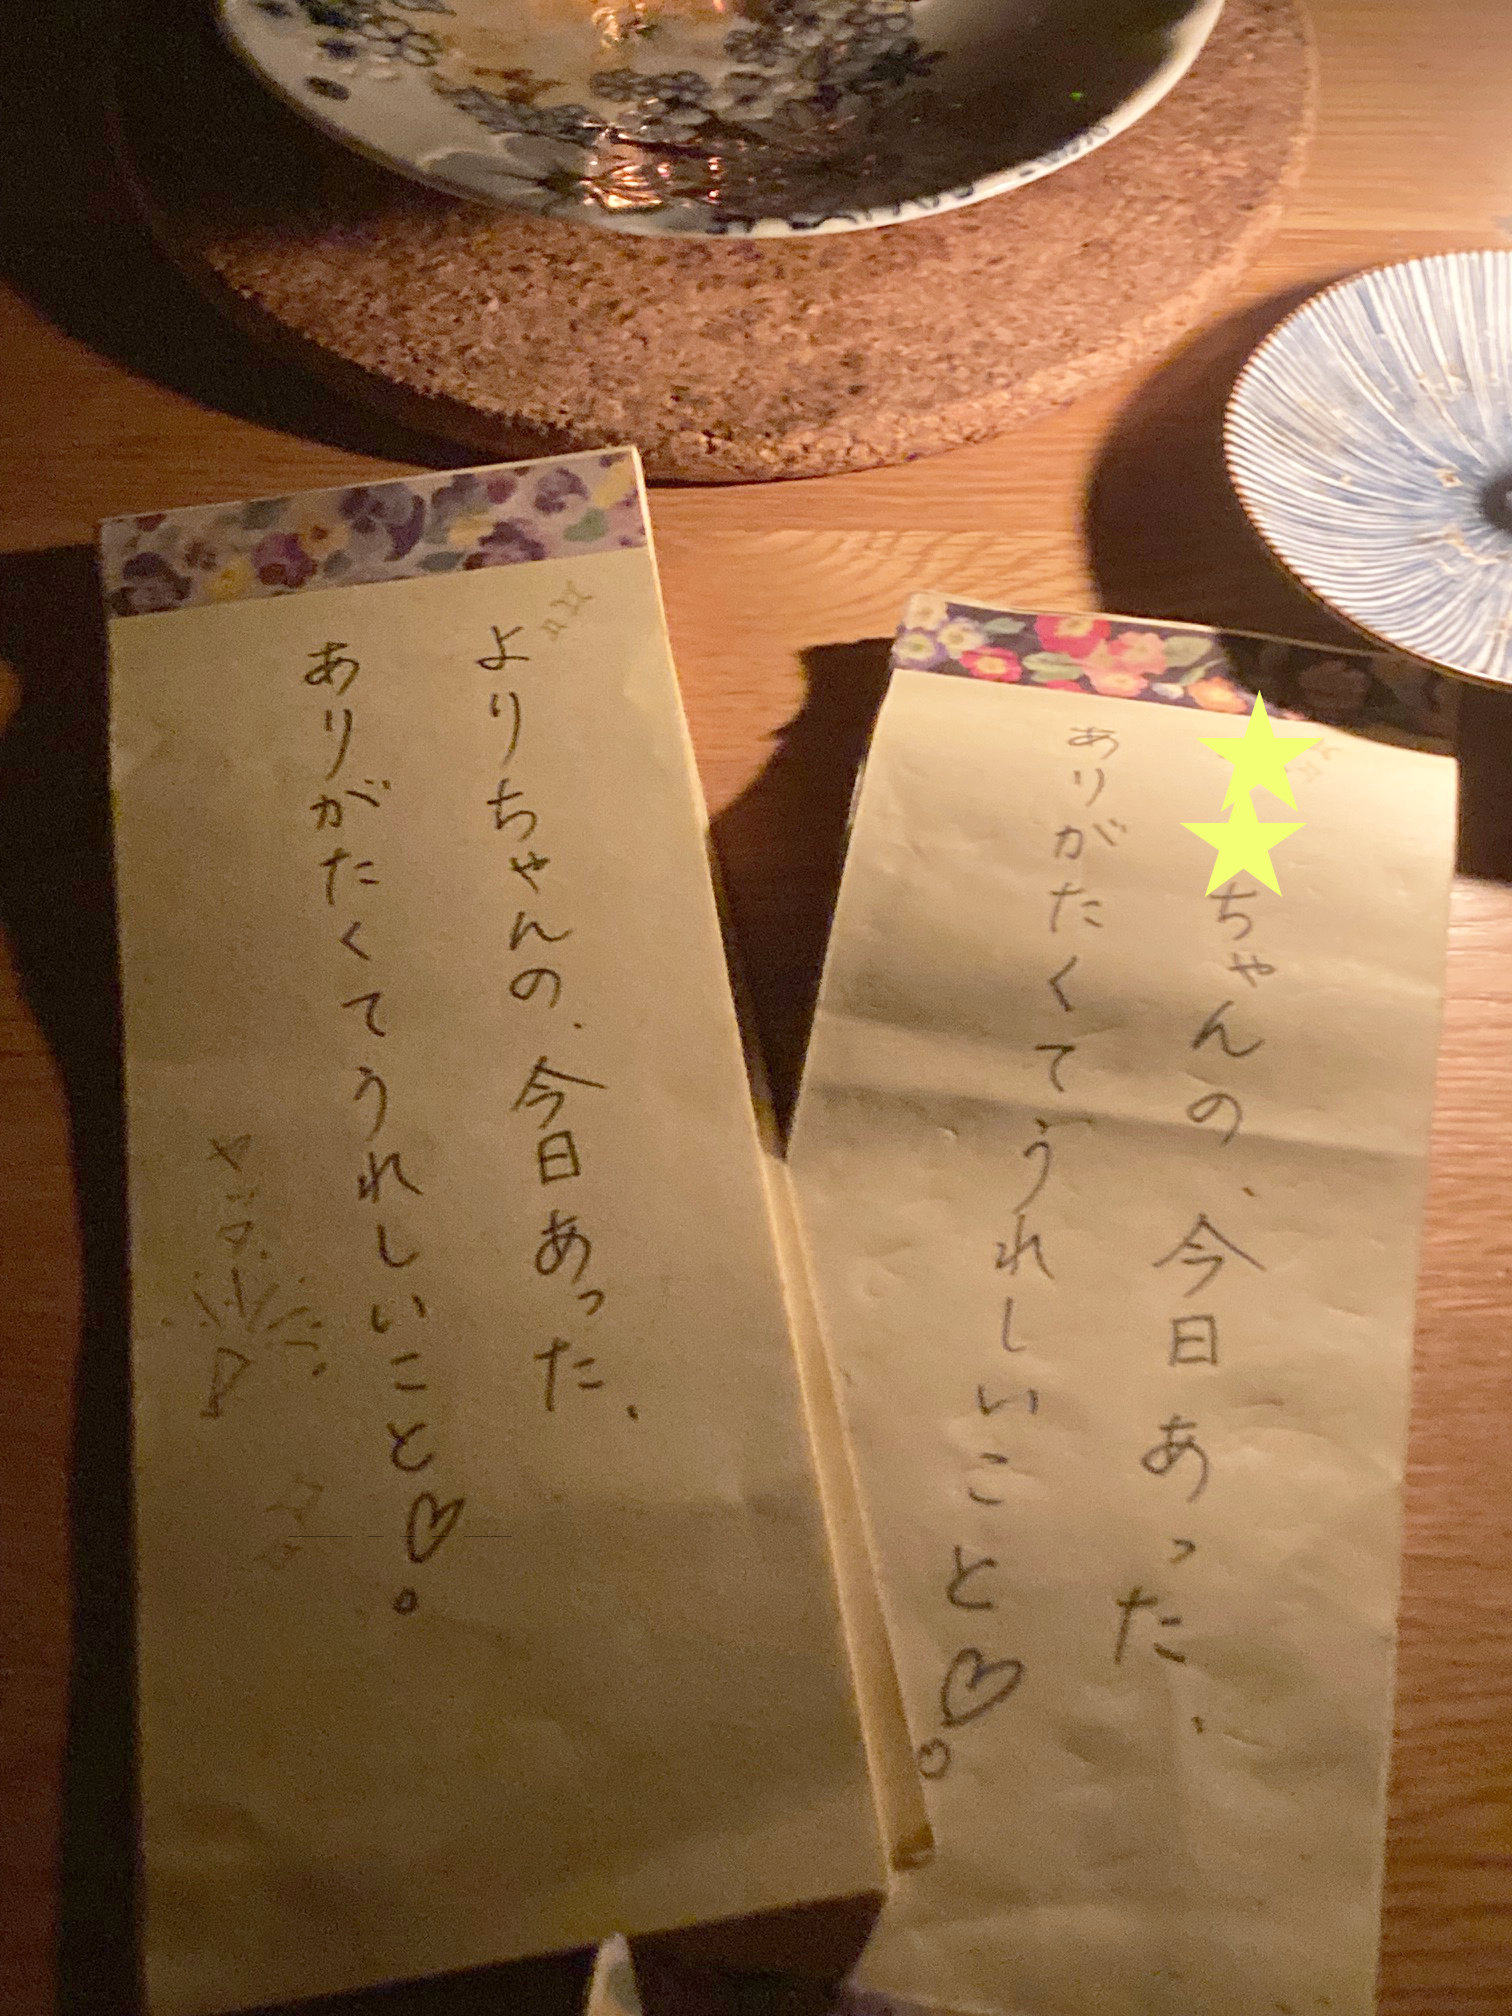 よりちゃんの、今日あった、
ありがたくてうれしいこと♡。
ちゃんの、今日あった、
ありがたくてうれしいこと♡。